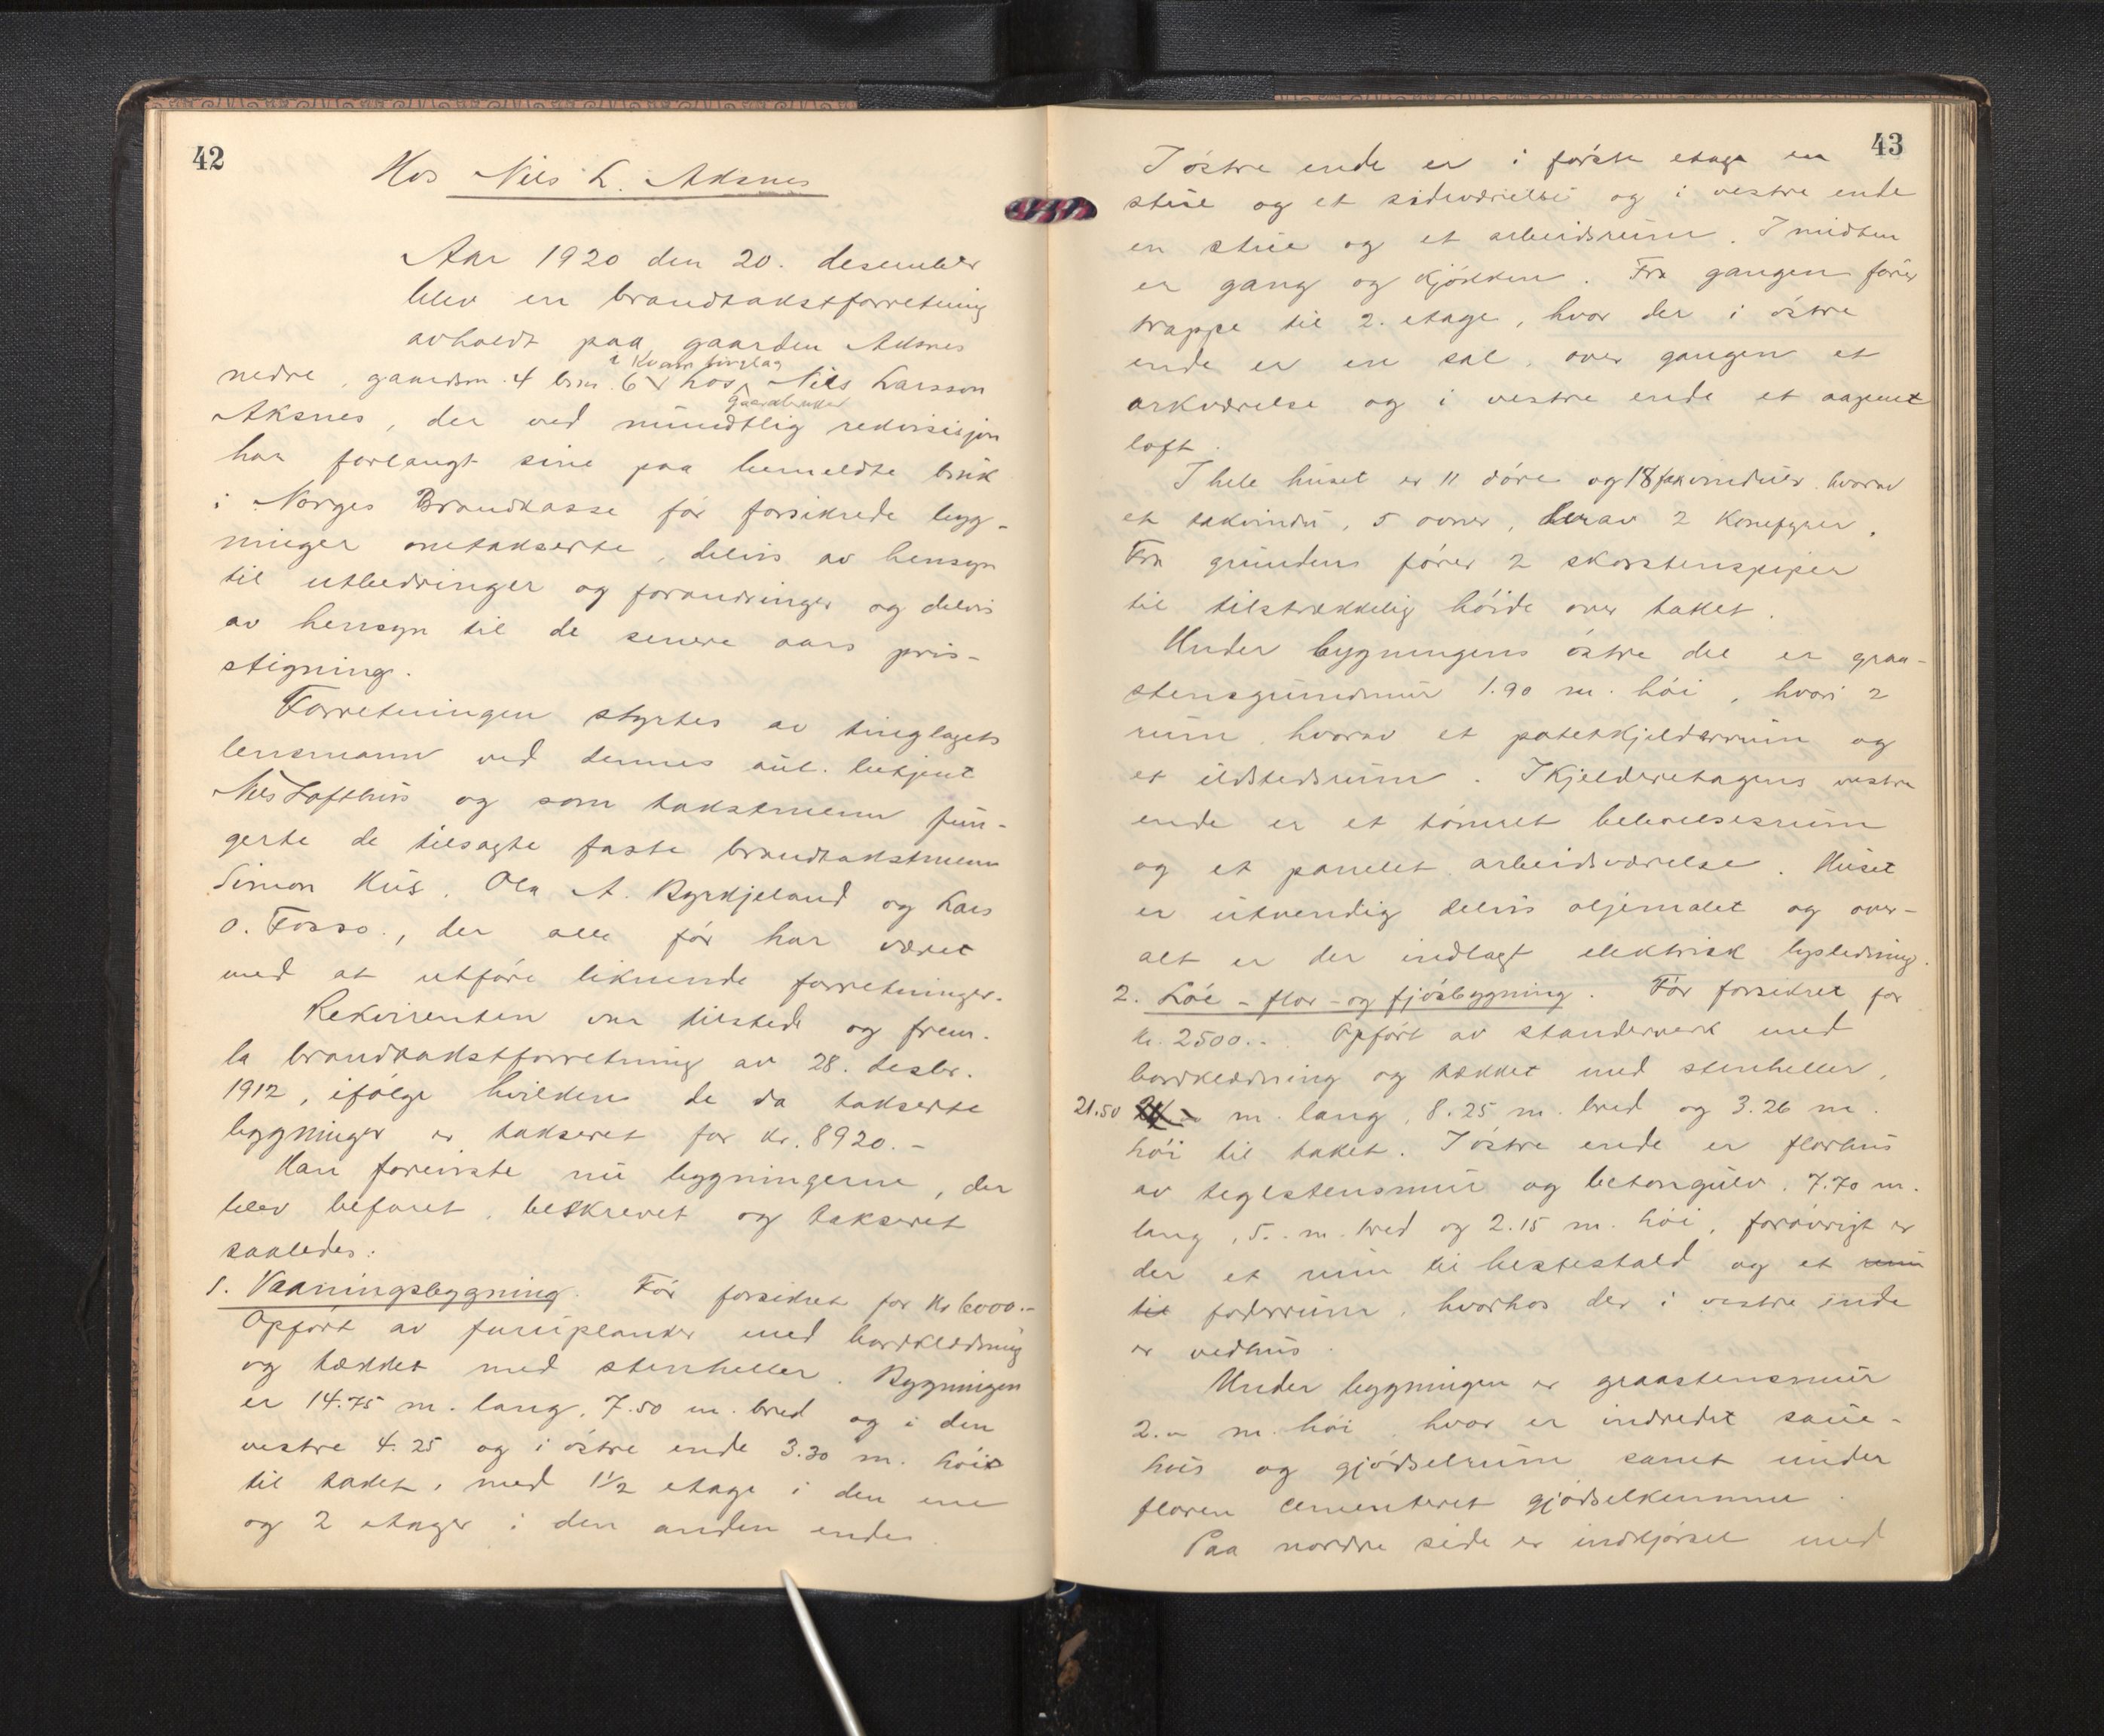 42
Hos Nils L. Aksnes
Aar 1920 den 20. desember
blev en brandtakstforretning
avholdt paa gaarden Aksnes
i Kvam tinglag
nedre, gaardsn. 4 brn. 6 hos Nils Larsson
gaardbruker
Aksnes, der ved mundtlig rekvisisjon
har forlangt sine paa bemeldte bruk
i Norges Brandkasse før forsikrede byg-
ninger omtakserte, delvis av hensyn
til utbedringer og forandringer og delvis
av hensyn til de senere aars pris-
stigning.
Forretningen styrtes av tinglagets
lensmann ved dennes aut. betjent
Nils Lofthus og som takstmenn fun-
gerte de tilsagte faste brandtakstmenn
Simon Hus, Ola A. Byrkjeland og Lars
O. Fosso., der alle før har været
med at utføre liknende forretninger.
Rekvirenten var tilstede og frem-
la brandtakstforretning av 28. desbr.
1912, ifølge hvilken de da takserte
bygninger er takseret for kr. 8920.-
Han foreviste nu bygningerne, der
blev befaret, beskrevet og takseret
saaledes:
1. Vaaningsbygning. Før forsikret for kr 6000.-
Opført av furuplanker med bordklædning
og tækket med stenheller. Bygningen
er 14.75 m. lang, 7.50 m. bred og i den
vestre 4.25 og i østre ende 3.30 m. høi
til taket, med 1½ etage i den ene
og 2 etager i den anden ende.
43
I østre ende er i første etage en
stue og et sideværelse og i vestre ende
en stue og et arbeidsrum. I midten
er gang og kjøkken. Fra gangen fører
trappe til 2. etage, hvor der i østre
ende er en sal, over gangen et
arkværelse og i vestre ende et aapent
loft.
I hele huset er 11 døre og 18 fak vinduer hvorav
et takvindu, 5 ovner, derav 2 komfyrer.
Fra grunden fører 2 skorstenspiper
til tilstrækkelig høide over taket.
Under bygningens østre del er graa-
stensgrundmur 1.90 m. høi, hvori 2
rum, hvorav et potetkjelderrum og
et ildstedsrum. I kjelderetagens vestre
ende er et tømret beboelsesrum
og et panelet arbeidsværelse. Huset
er utvendig delvis oljemalet og over-
alt er der indlagt elektrisk lysledning.
2. Løe - flor - og fjøsbygning. Før forsikret for
kr. 2500.-. Opført av standerverk med
bordklædning og tækket med stenheller,
21.50 m. lang, 8.25 m. bred og 3.26 m.
høi til taket. I østre ende er florhus
av teglstensmur og betongulv. 7.70 m.
lang, 5.- m. bred og 2.15 m. høi, forøvrigt er
der et rum til hestestald og et rum
til foderrum, hvorhos der i vestre ende
er vedhus.
Under bygningen er graastensmur
2.- m. høi, hvor er indredet saue-
hus og gjødselrum samt under
floren cementeret gjødselkumme.
Paa nordre side er indkjørsel med